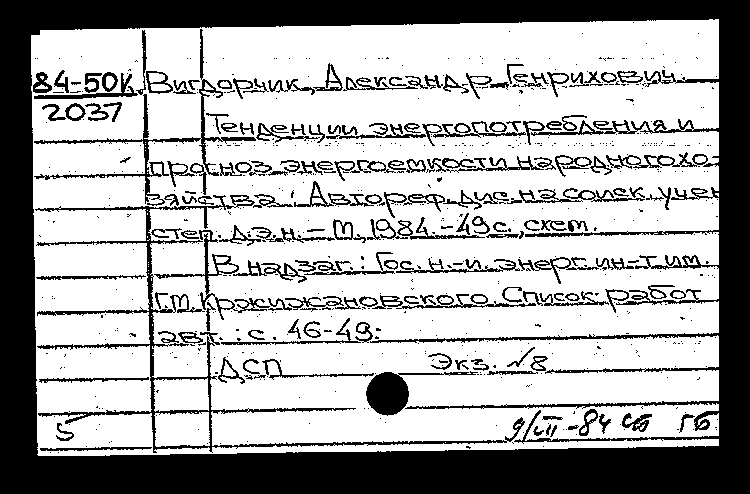 84-50к Вигдорчик, Александр Генрихович.
2037
Тенденции энергопотребления и
прогноз энергоемкости народного хо-
зяйства : Автореф. дис. на соиск. учен
степ. д.э.н. – М., 1984. - 49 с., схем.
В надзаг.: Гос. н.-и. энерг. ин-т им.
Г.М. Кржижановского. Список работ
авт.: с. 46-49.
ДСП Экз. №8
5 9/VII-84 сб ГБ